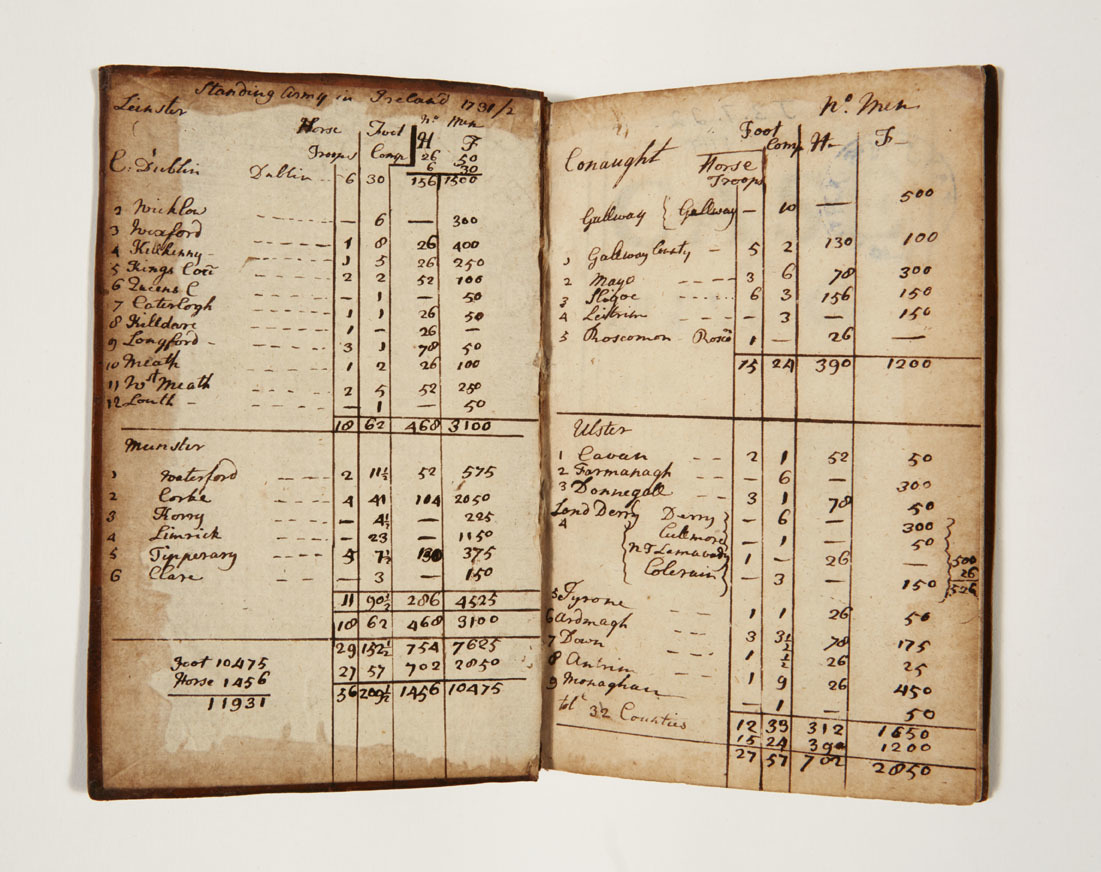 Standing Army in Ireland 1731/2
Leinster
Horse Foot No Men
Troops Comp H F
26 50
6 30
C. Dublin Dublin 6 30 156 1500
2 Wicklow — 6 — 300
3 Wexford 1 8 26 400
4 Kilkenny 1 5 26 250
5 Kings Coú 2 2 52 100
6 Queens C — 1 — 50
7 Caterlogh 1 1 26 50
8 Killdare 1 — 26 —
9 Longford 3 1 78 50
10 Meath 1 2 26 100
11 Wst Meath 2 5 52 250
12 Louth — 1 — 50
18 62 468 3100
Munster
1 Waterford 2 11½ 52 575
2 Corke 4 41 104 2050
3 Kerry — 4½ — 225
4 Limrick — 23 — 1150
5 Tipperary 5 7½ 130 375
6 Clare — 3 — 150
11 90½ 286 4525
18 62 468 3100
29 152½ 754 7625
Foot 10475 27 57 702 2850
Horse 1456 56 209½ 1456 10475
11931
No Men
Foot
Conaught Horse Comp H F
Troops
Gallway { Gallway — 10 — 500
1 Gallway County 5 2 130 100
2 Mayo 3 6 78 300
3 Sligoe 6 3 156 150
4 Leitrim — 3 — 150
5 Roscomon Rosco 1 — 26 —
15 24 390 1200
Ulster
1 Cavan 2 1 52 50
2 Farmanagh — 6 — 300
3 Donnegall 3 1 78 50
4 Lond Derry Derry — 6 — 300
Cullmore — 1 — 50
NT Lemavady 1 — 26 — 500
Colerain — 3 — 150 26
526
5 Tyrone 1 1 26 50
6 Ardmagh 3 3½ 78 175
7 Down 1 ½ 26 25
8 Antrim 1 9 26 450
9 Monaghan — 1 — 50
totl 32 Counties 12 33 312 1650
15 24 390 1200
27 57 702 2850